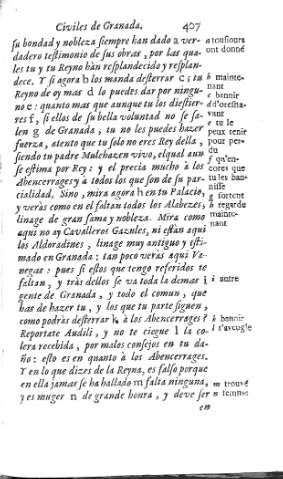 Civiles de Granada. 407
su bondad y nobleza siempre han dado a ver-
dadero testimonio de sus obras, por las qua-
les tu y tu Reyno han resplandecido y resplan-
dece. Y si agora b los manda desterrar c; tu
Reyno de oy mas d lo puedes dar por ningu-
no e: quanto mas que aunque tu los destier-
res f, si ellos de su bella voluntad no se sa-
len g de Granada, tu no les puedes hazer
fuerça, atento que tu solo no eres Rey della,
siendo tu padre Mulehazen vivo, el qual aun
se estima por Rey: y el precia mucho à los
Abencerrages y à todos los que son de su par-
cialidad. Sino, mira agora h en tu Palacio,
y veràs como en el faltan todos los Alabezes,
linage de gran fama y nobleza. Mira como
aqui no ay Cavalleros Gazules, ni estàn aqui
los Aldoradines, linage muy antiguo y esti-
mado en Granada: tan poco veràs aqui Va-
negas: pues si estos que tengo referidos te
faltan, y tràs dellos se va toda la demar i
gente de Granada, y todo el comun, que
has de hazer tu, y los que tu parte siguen,
como podràs desterrar k à los Abencerrages?
Reportate Audili, y no te ciegue l la co-
lera recebida, por malos consejos en tu da-
ño: esto es en quanto à los Abencerrages.
Y en lo que dizes de la Reyna, es falso porque
en ella jamas se ha hallado m falta ninguna,
y es muger n de grande honra, y deve ser
en
a tousiours
ont donné
b mainte-
nant
c bannir
d d'oresna-
vant
e tu le
peux tenir
pour per-
du
f qu'en-
cores que
tu les ban-
nisse
g sortent
h regarde
mainte-
nant
i autre
k bannir
l t'aveugle
m trouvé
n femme